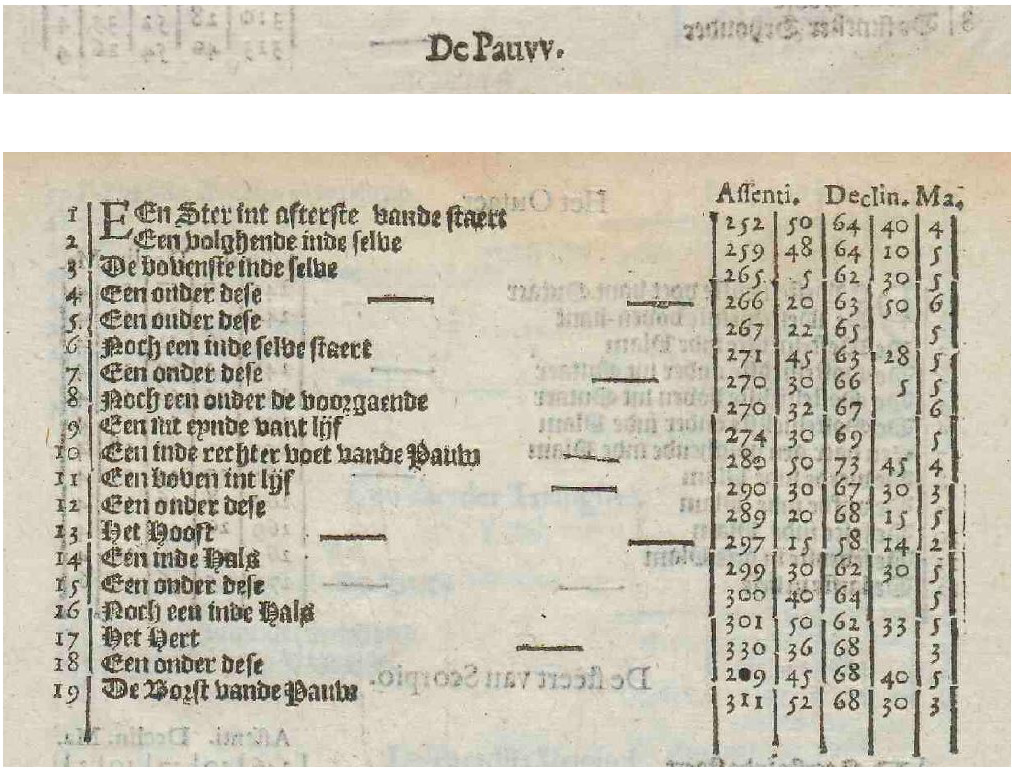 De Pauvv.
Assenti. Declin. Ma.
1 EEn Ster int afterste vande staert 252 50 64 40 4
2 Een volghende inde selve 259 48 64 10 5
3 De bovenste inde selve 265 5 62 30 5
4 Een onder dese 266 20 63 50 6
5 Een onder dese 267 22 65 5
6 Noch een inde selve staert 271 45 63 28 5
7 Een onder dese 270 30 66 5 5
8 Noch een onder de voorgaende 270 32 67 6
9 Een int eynde vant lijf 274 30 69 5
10 Een inde rechter voet vande Pauw 280 50 73 45 4
11 Een boven int lijf 290 30 67 30 3
12 Een onder dese 289 20 68 15 5
13 Het Hooft 297 15 58 14 2
14 Een inde Hals 299 30 62 30 5
15 Een onder dese 300 40 64 5
16 Noch een inde Hals 301 50 62 33 5
17 Het Hert 330 36 68 3
18 Een onder dese 45 68 40 5
19 De Borst vande Pauw 311 52 68 30 3